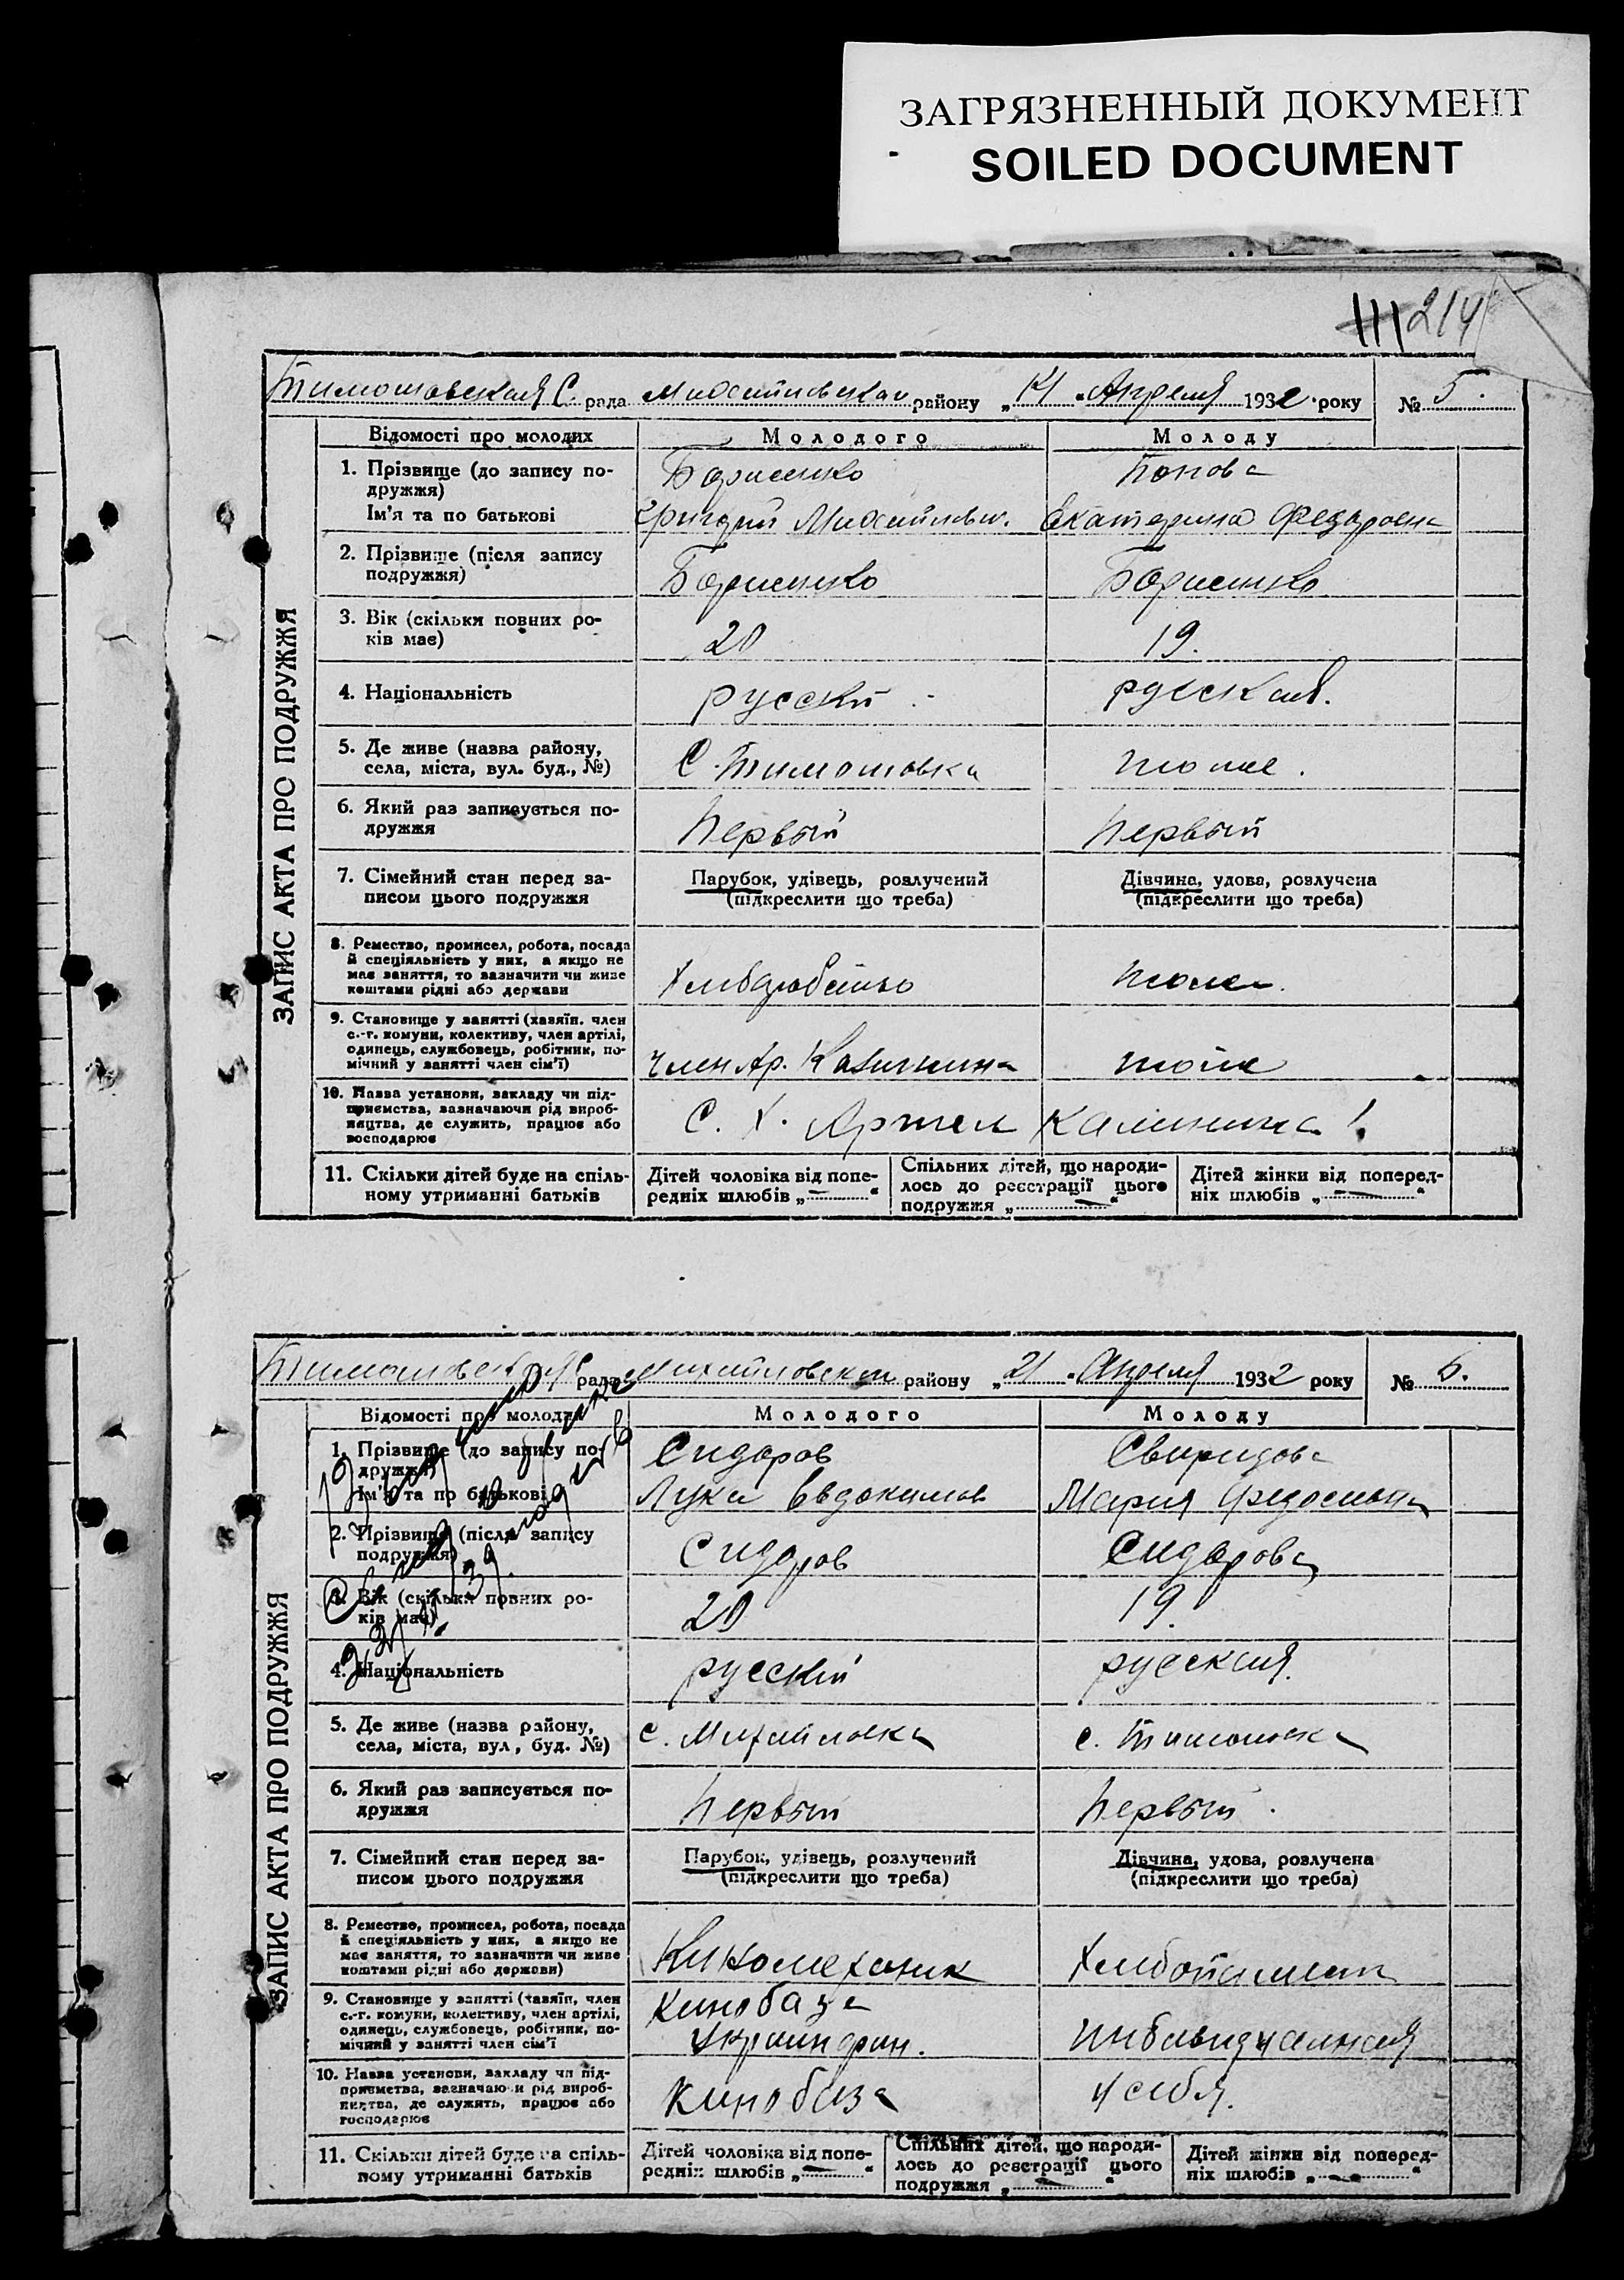 ЗАГРЯЗНЕННЫЙ ДОКУМЕНТ
SOILED DOCUMENT
214
Тимошовская С. рада Михайловская району „ “ Апреля 1932 року № 5.
ЗАПИС АКТА ПРО ПОДРУЖЖЯ
Відомості про молодих Молодого Молоду
1. Прізвище (до запису по-
дружжя) Борисенко Попова
Ім'я та по батькові Григорий Михайлович. Екатерина Федоровна
2. Прізвище (після запису
подружжя) Борисенко Борисенко
3. Вік (скільки повних ро-
ків має) 20 19.
4. Національність русский русская.
5. Де живе (назва району,
села, міста, вул. буд., №) С. Тимошовка тоже.
6. Який раз записується по-
дружжя Первый Первый
7. Сімейний стан перед за- Парубок, удівець, розлучений Дівчина, удова, розлучена
писом цього подружжя (підкреслити що треба) (підкреслити що треба)
8. Ремество, промисел, робота, посада
й спеціяльність у них, а якщо не
має заняття, то зазначити чи живе
коштами рідні або держави тоже
9. Становище у занятті (хазяїн, член
с.-г. комуни, колективу, член артілі,
одинець, службовець, робітник, по-
мічний у занятті член сім'ї) член Ар. Калинина тоже
10. Назва установи, закладу чи під-
приємства, зазначаючи рід вироб-
ництва, де служить, працює або
господарює С. Х. Артел Калинина
11. Скільки дітей буде на спіль-
ному утриманні батьків
Дітей чоловіка від попе-
редніх шлюбів „—“
Спільних дітей, що народи-
лось до реєстрації цього
подружжя „—“
Дітей жінки від поперед-
ніх шлюбів „—“
рада Михайловском району „21“ Апреля 1932 року № 6.
ЗАПИС АКТА ПРО ПОДРУЖЖЯ
Відомості про молодих Молодого Молоду
1. Прізвище (до запису по-
дружжя) Сидоров Свиридова
Ім'я та по батькові Лука Евдокимов Мария
2. Прізвище (після запису
подружжя) Сидоров Сидорова
3. Вік (скільки повних ро-
ків має) 20 19.
4. Національність русский русская.
5. Де живе (назва району,
села, міста, вул, буд. №) с. Михайловка с. Тимошовка
6. Який раз записується по-
дружжя Первый Первый
7. Сімейний стан перед за- Парубок, удівець, розлучений Дівчина, удова, розлучена
писом цього подружжя (підкреслити що треба) (підкреслити що треба)
8. Ремество, промисел, робота, посада
й спеціяльність у них, а якщо не
має заняття, то зазначити чи живе
коштами рідні або держави) Киномеханик
9. Становище у занятті (хазяїн, член
с.-г. комуни, колективу, член артілі,
одинець, службовець, робітник, по-
мічний у занятті член сім'ї Кинобаза
10. Назва установи, закладу чи під-
приємства, зазначаючи рід вироб-
ництва, де служить, працює або
господарює Кинобаза У себя.
11. Скільки дітей буде на спіль-
ному утриманні батьків
Дітей чоловіка від попе-
редніх шлюбів „—“
Спільних дітей, що народи-
лось до реєстрації цього
подружжя „—“
Дітей жінки від поперед-
ніх шлюбів „—“